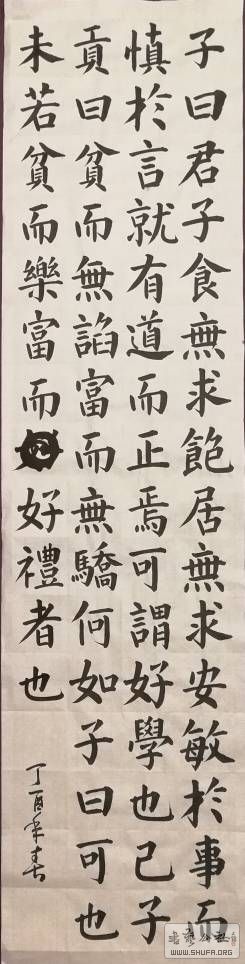 子曰君子食無求飽居無求安敏於事而
慎於言就有道而正焉可謂好學也己子
貢曰貧而無諂富而無驕何如子曰可也
未若貧而樂富而好禮者也
丁酉年春
WWW.SHUFA.ORG